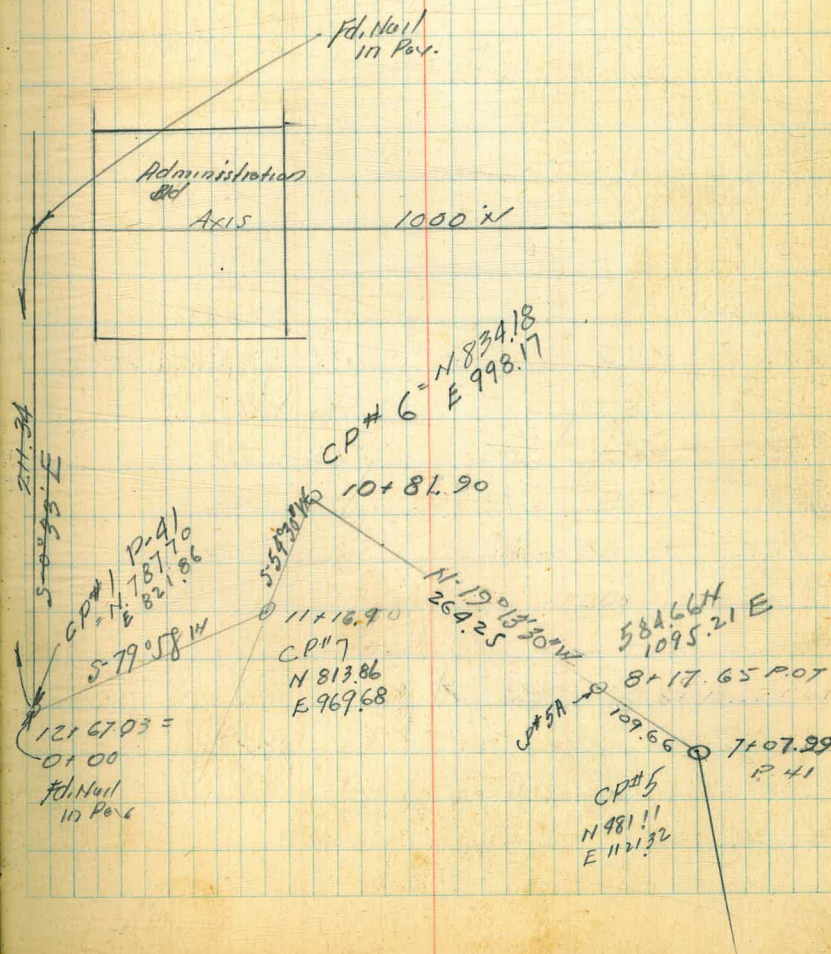 Fd. Nail
in Pav.
Administration
Bld
Axis
1000 N
CP# 6 = N 834.18
E 998.17
10+81.90
211.34
CP#1 P-41
= N. 787.70
E 821.86
S-54°30'W
S-79°58'W
11+16.90
CP#7
N 813.86
E 969.68
N-19°13'30"W
264.25
584.66 N
1095.21 E
8+17.65 P.OT
CP#5A
109.66
7+07.99
P. 41
CP#5
N 481.11
E 1121.32
12+67.03 =
0+00
Fd. Nail
in Pav